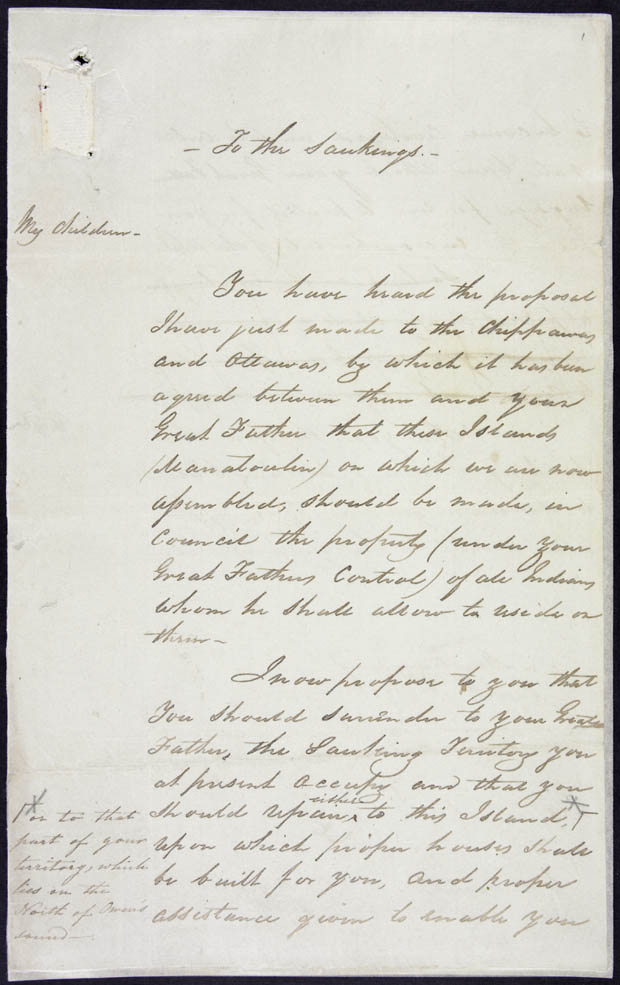 — To the Saukings. —
My Children —
You have heard the proposal
I have just made to the Chippawas
and Ottawas, by which it has been
agreed between them and your
Great Father that these Islands
(Manatoulin) on which we are now
assembled, should be made, in
Council the property (under your
Great Fathers Control) of all Indians
whom he shall allow to reside on
them —
I now propose to you that
You should surrender to your Great
Father, the Sauking Territory you
at present occupy and that you
should repair either to this Island,
upon which proper houses shall
be built for you, and proper
assistance given to enable you
* or to that
part of your
territory, which
lies on the
North of Owen's
sound —